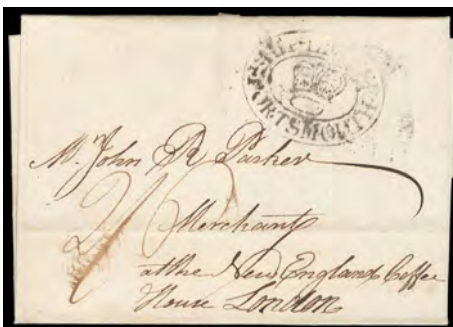 SHIP-LETTER
PORTSMOUTH
Mr. John R Parker
Merchant
at the New England Coffee
House London